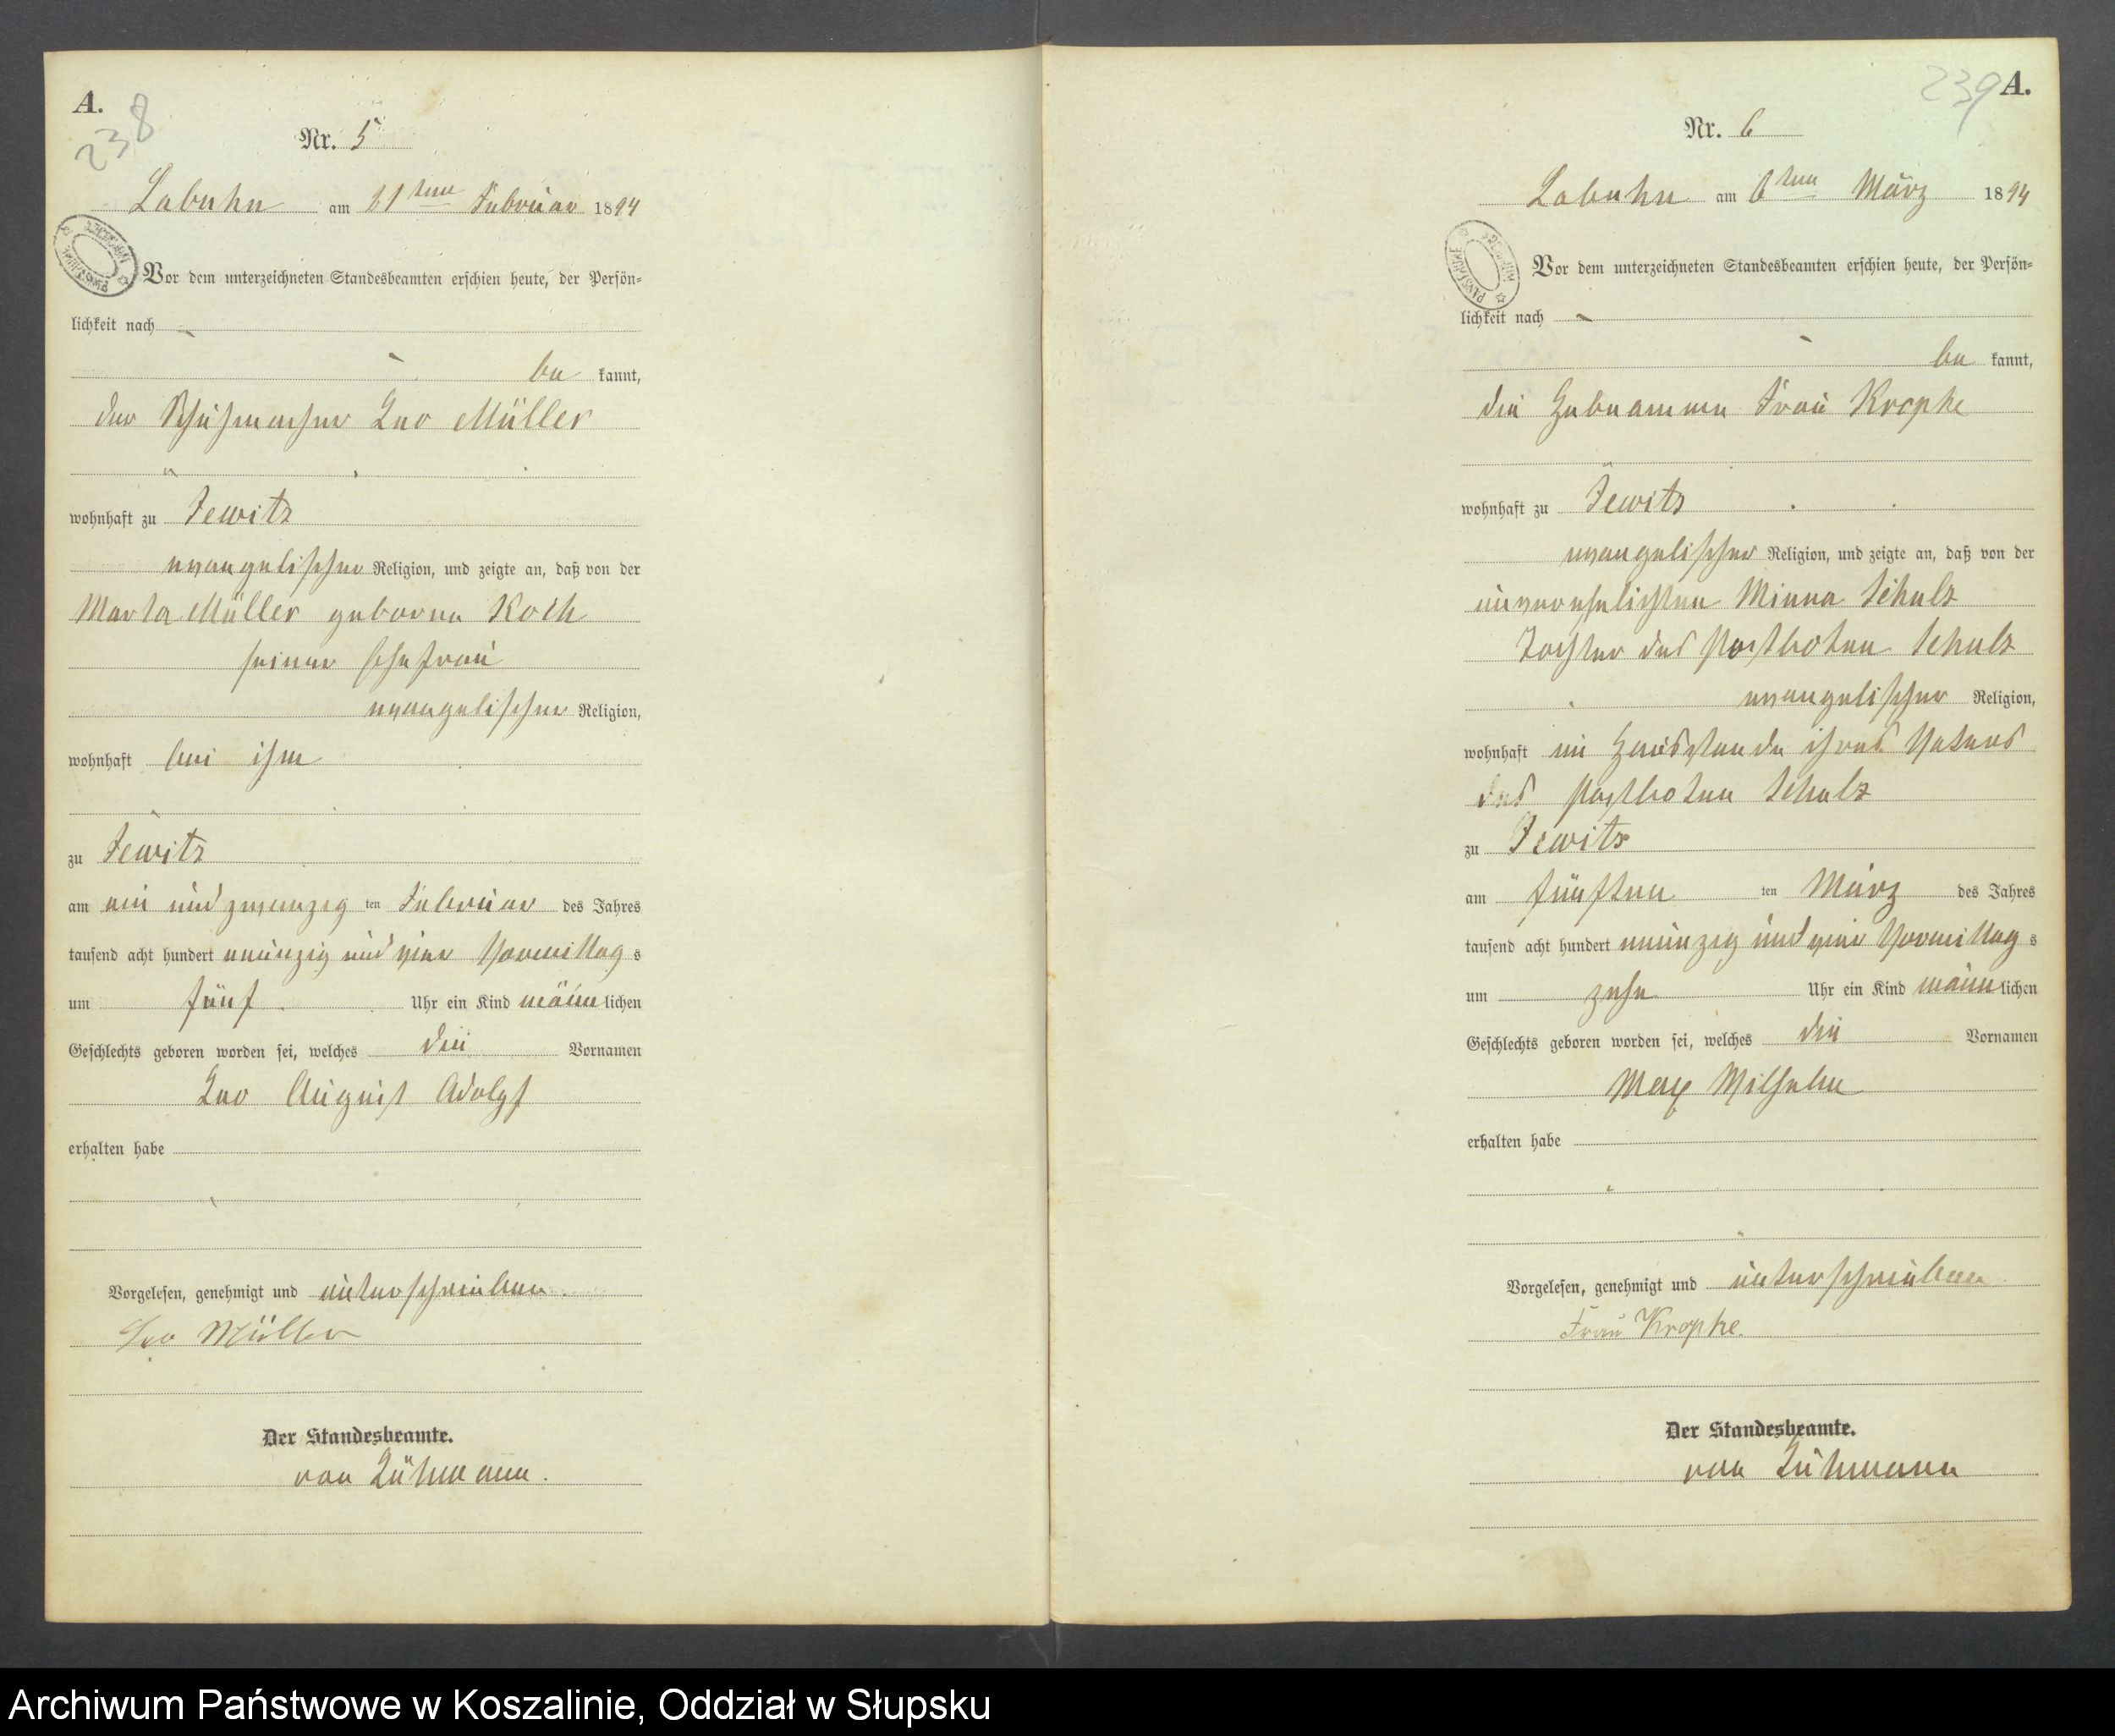 A.
238
Nr. 5
Labuhn am 21ten Februar 1894
Vor dem unterzeichneten Standesbeamten erschien heute, der Persön-
lichkeit nach
be kannt,
der Schuhmacher Leo Müller
wohnhaft zu Jewitz
evangelischer Religion, und zeigte an, daß von der
Marta Müller geborne Koch
seiner Ehefrau
evangelischer Religion,
wohnhaft bei ihm
zu Jewitz
am ein und zwanzig ten Februar des Jahres
tausend acht hundert neunzig und vier Vormittag s
um fünf Uhr ein Kind männ lichen
Geschlechts geboren worden sei, welches die Vornamen
Leo August Adolf
erhalten habe
Vorgelesen, genehmigt und unterschrieben
Leo Müller
Der Standesbeamte.
von Lühmann.
239 A.
Nr. 6
Labuhn am 6ten März 1894
Vor dem unterzeichneten Standesbeamten erschien heute, der Persön-
lichkeit nach
be kannt,
die Hebamme Frau Kropke
wohnhaft zu Jewitz
evangelischer Religion, und zeigte an, daß von der
unverehelichten Minna Schulz
Tochter des Postboten Schulz
evangelischer Religion,
wohnhaft im Hausstande ihres Vaters
des Postboten Schulz
zu Jewitz
am fünften ten März des Jahres
tausend acht hundert neunzig und vier Vormittag s
um zehn Uhr ein Kind männ lichen
Geschlechts geboren worden sei, welches die Vornamen
Max Wilhelm
erhalten habe
Vorgelesen, genehmigt und unterschrieben
Frau Kropke.
Der Standesbeamte.
von Lühmann
Archiwum Państwowe w Koszalinie, Oddział w Słupsku